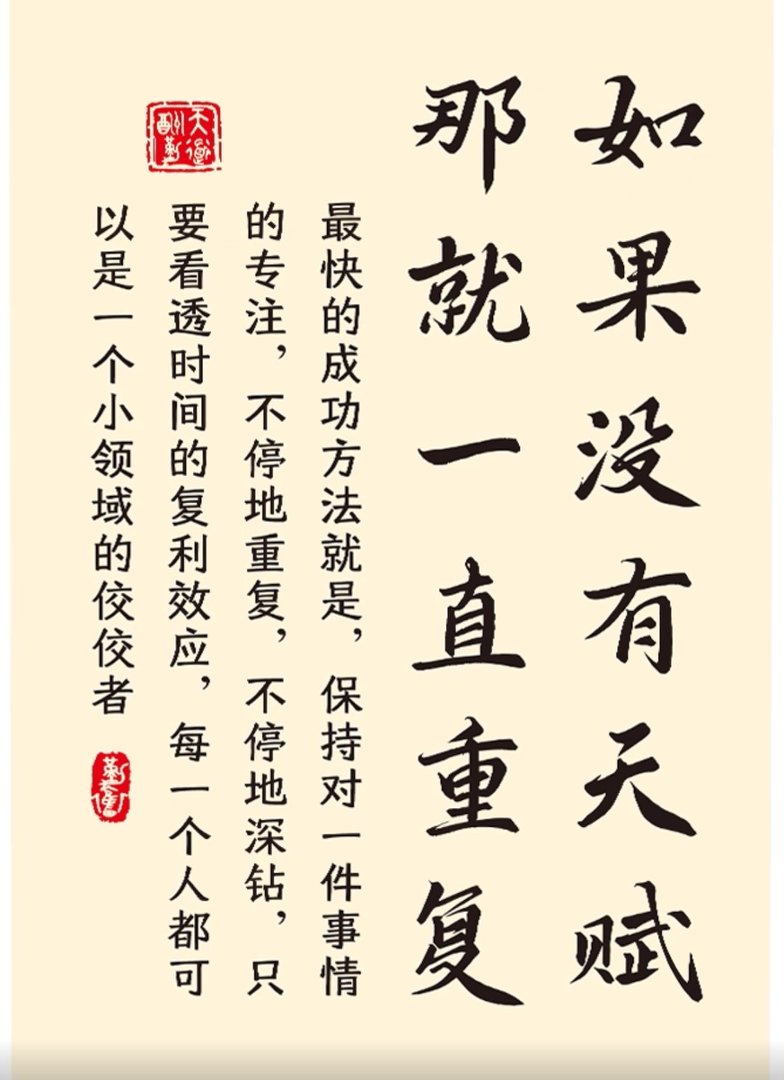 如果没有天赋
那就一直重复
最快的成功方法就是，保持对一件事情
的专注，不停地重复，不停地深钻，只
要看透时间的复利效应，每一个人都可
以是一个小领域的佼佼者
天道酬勤